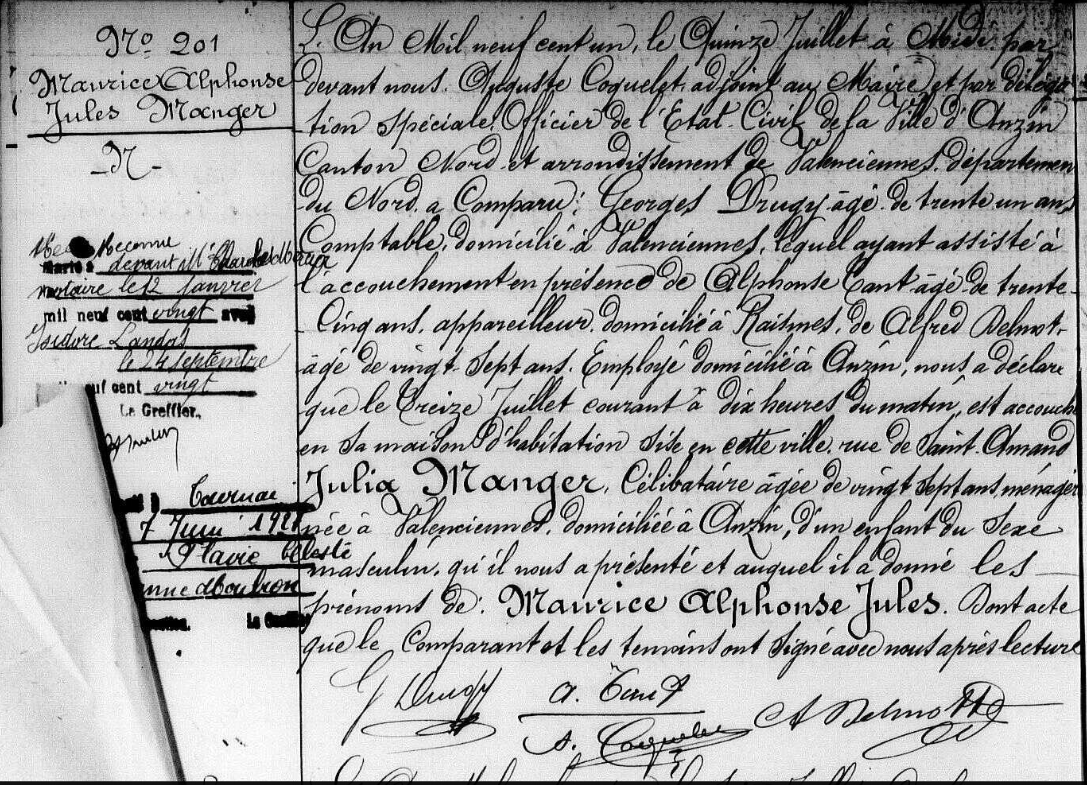 No 201
Maurice Alphonse
Jules Manger
-N-
Reconnu
Marié à devant Me
notaire le 12 janvier
mil neuf cent vingt avec
Isidore Landas
le 24 septembre
neuf cent vingt
Le Greffier,
Tournai
7 Juin 192
Flavie Céleste
Le Greffier
L'An Mil neuf cent un, le Quinze Juillet à Midi par
devant nous. Auguste Coquelet, adjoint au Maire, et par déléga
tion spéciale, Officier de l'Etat-Civil de la Ville d'Anzin
Canton Nord et arrondissement de Valenciennes, départemen
du Nord, a Comparu: Georges Drugy âgé de trente un ans
Comptable, domicilié à Valenciennes, lequel ayant assisté à
l'accouchement en présence de Alphonse Cant âgé de trente-
Cinq ans, appareilleur, domicilié à Raismes, de Alfred Delmot-
âgé de vingt-Sept ans. Employé domicilié à Anzin, nous a déclaré
que le Treize Juillet courant à dix heures du matin, est accouch
en Sa maison d'habitation Sise en cette ville, rue de Saint-Amand
Julia Manger, Célibataire âgée de vingt Sept ans, ménagèr
née à Valenciennes, domiciliée à Anzin, d'un enfant du Sexe
masculin, qu'il nous a présenté et auquel il a donné les
prénoms de: Maurice Alphonse Jules. Dont acte
que le Comparant et les temoins ont Signé avec nous après lecture
G Drugy
A. Cant
A Delmotte
A. Coquelet